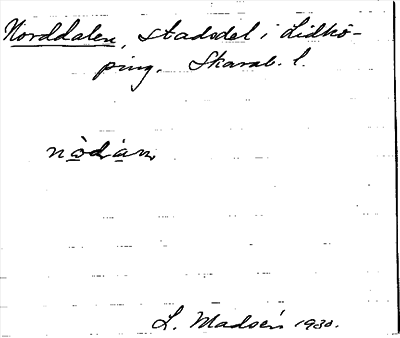 Norddalen, stadsdel i Lidkö-
ping. Skarab. l.
nòdàn
L. Madsén 1930.